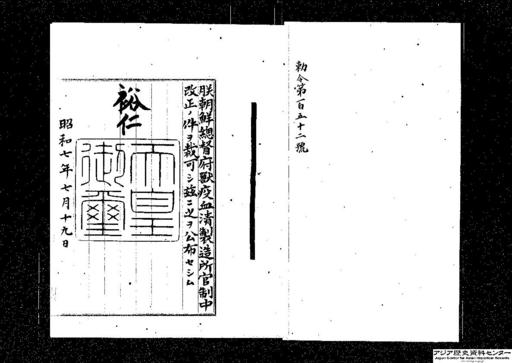 勅令第百五十二號
朕朝鮮總督府獸疫血清製造所官制中
改正ノ件ヲ裁可シ玆ニ之ヲ公布セシム
裕仁
天皇
御璽
昭和七年七月十九日
アジア歴史資料センター
Japan Center for Asian Historical Records